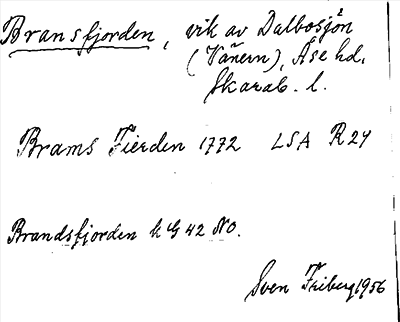 Bransfjorden, vik av Dalbosjön
(Vänern), Åse hd,
Skarab. l.
Brams Fierden 1772 LSA R24
Brandsfjorden k G 42 NO.
Sven Friberg 1956